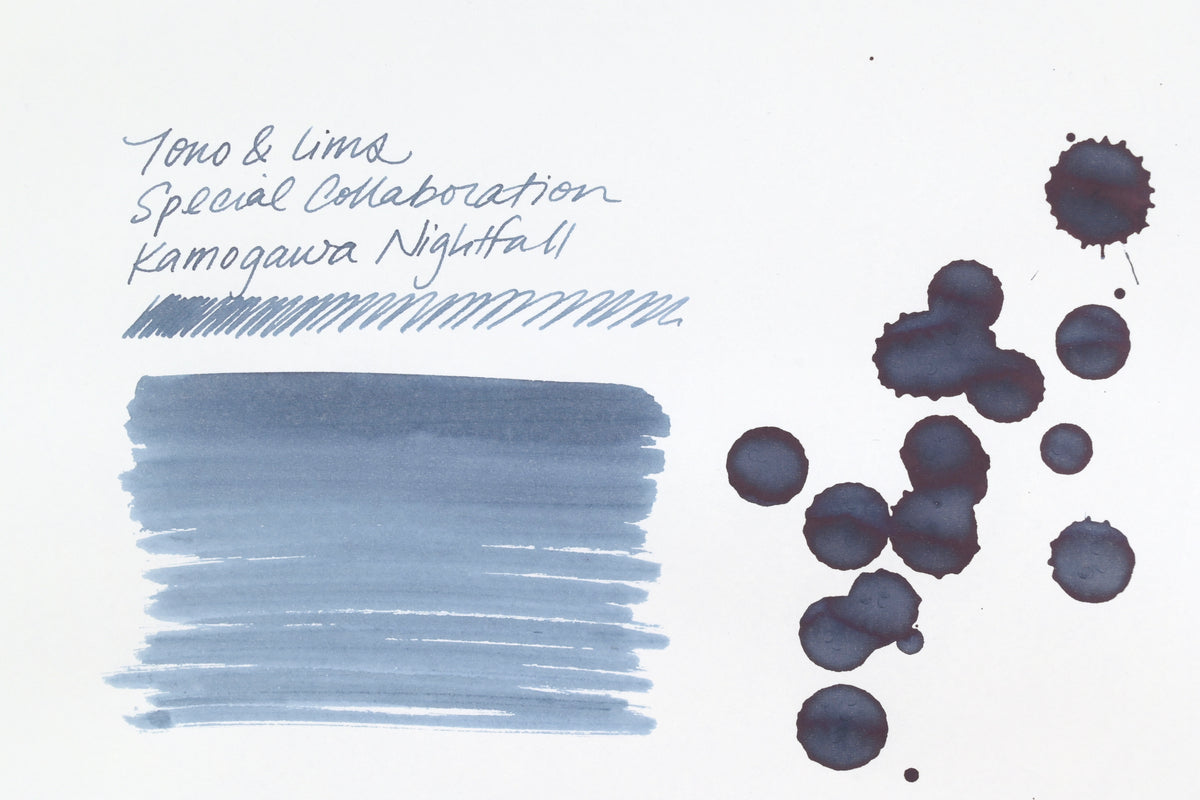 Tono & Lims
Special Collaboration
Kamogawa Nightfall